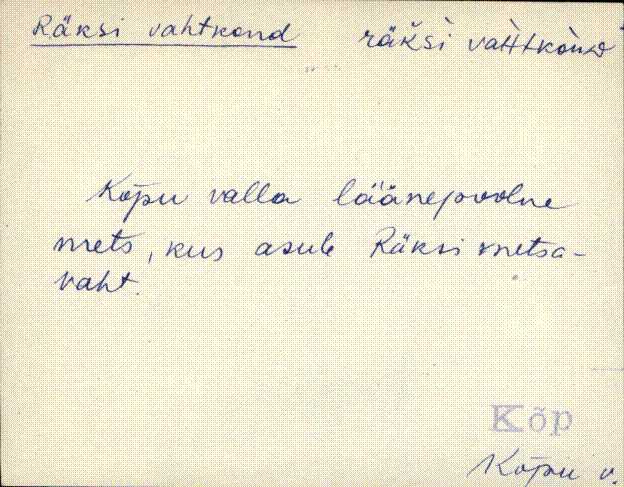 Räksi vahtkond räkśi vaħtkònd
Kõpu valla läänepoolne
mets, kus asub Räksi metsa-
vaht.
Kõp
Kõpu v.